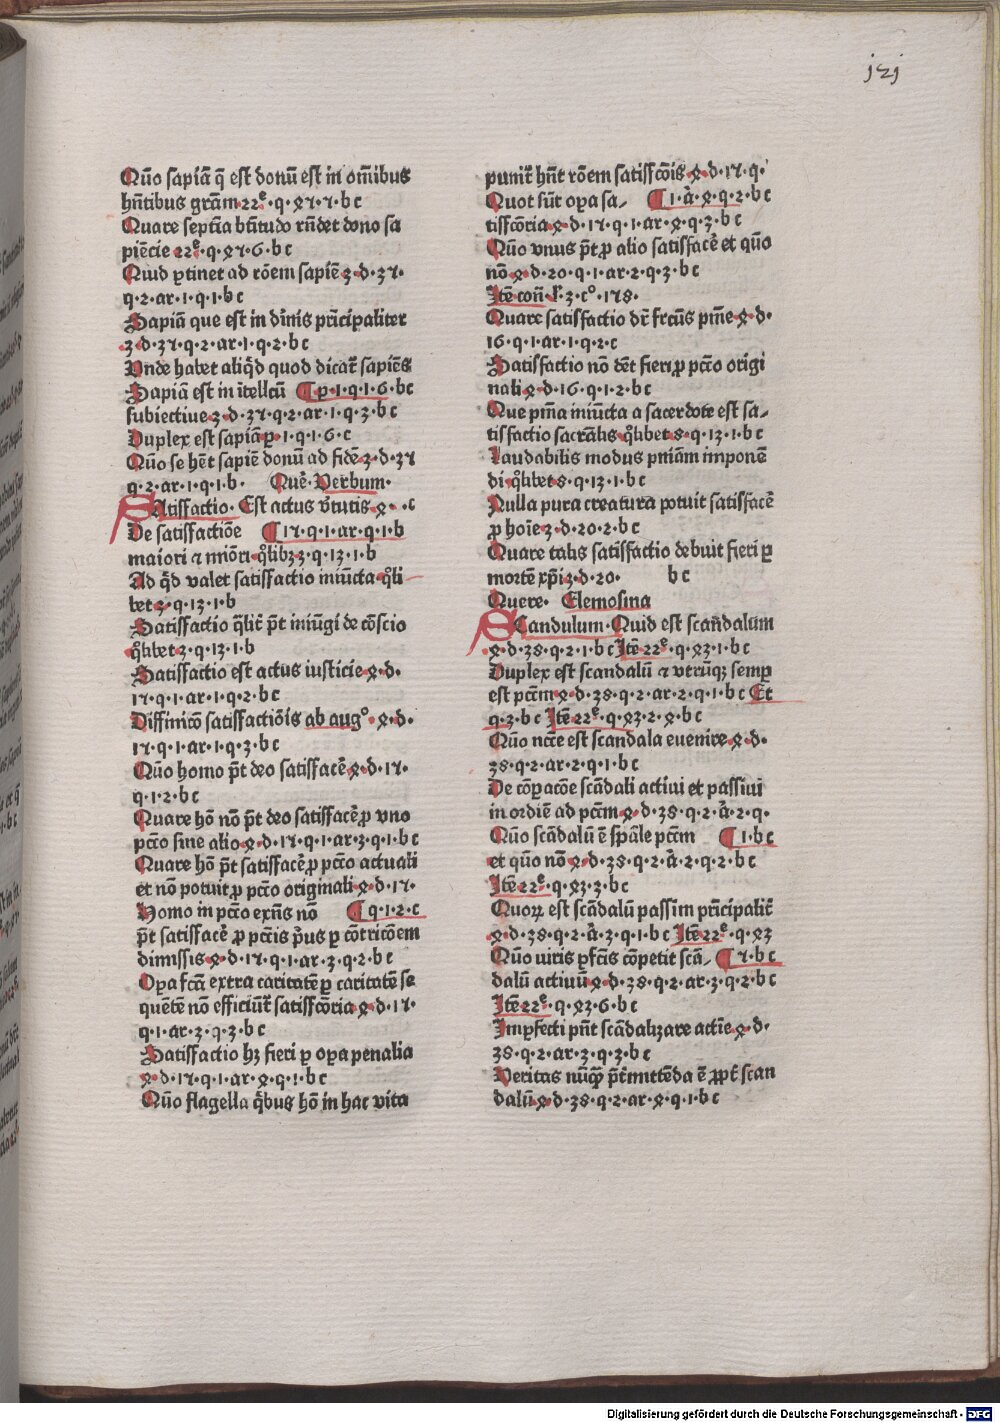 121
Qūo sapiā q̄ est donū est in om̄ibus
hn̄tibus grām·22ͤ·q·ꝝ7·7·b c
Quare septīa bt̄itudo rn̄det dono sa
piēcie 22ͤ·q·ꝝ7·6·b c
Quid ꝑtinet ad rōem sapiē 3·d·37·
q·2·ar·1·q·1·b c
Sapiā que est in diīnis pn̄cipaliter
3·d·37·q·2·ar·1·q·2·b c
Unde habet aliq̇d quod dicat̄ sapiēs
Sapiā est in ītellcū ¶ p·1·q·1·6·bc
subiectiue 3·d·37·q·2·ar·1·q·3·b c
Duplex est sapiā p·1·q·1·6·c
Qūo se hēt sapiē donū ad fidē 3·d·37
q·2·ar·1·q·1·b· Quē· Verbum·
SAtisfactio· Est actus v̄tutis ꝝ··c
De satisfactiōe ¶ 17·q·1·ar·q·1·b
maiori ⁊ mīōri q̊libꝫ 3·q·13·1·b
Ad q̄d valet satisfactio iniūcta q̊li
bet 3·q·13·1·b
Satisfactio q̄lit̄ p̄t iniūgi de cōscio
q̊libet 3·q·13·1·b
Satisfactio est actus iusticie ꝝ·d·
17·q·1·ar·1·q·2·b c
Diffinicō satisfactiōis ab augº·ꝝ·d·
17·q·1·ar·1·q·3·b c
Qūo homo p̄t deo satisfacē ꝝ·d·17·
q·1·2·b c
Quare hō nō p̄t deo satisfacē ꝓ vno
pctō sine alio ꝝ·d·17·q·1·ar·3·q·1·b c
Quare hō p̄t satisfacē ꝓ pctō actuali
et nō potuit ꝓ pctō originali ꝝ·d·17·
Homo in pctō exn̄s nō ¶ q·1·2·c
p̄t satisfacē ꝓ pctīs p̄us ꝑ cōtricōem
dimissis ꝝ·d·17·q·1·ar·3·q·2·b c
Opa fcā extra caritatē ꝑ caritatē se
quētē nō efficiūt̄ satisfcōria ꝝ·d·17·
q·1·ar·3·q·3·b c
Satisfactio hꝫ fieri ꝑ oꝑa penalia
ꝝ·d·17·q·1·ar·ꝝ·q·1·b c
Qūo flagella q̄bus hō in hac vita
punit̄ hn̄t rōem satisfcōis ꝝ·d·17·q·
Quot sūt oꝑa sa⸗ ¶ 1·ā·ꝝ·q·2·b c
tisfcōria ꝝ·d·17·q·1·ar·ꝝ·q·3·b c
Qūo vnus p̄t ꝓ alio satisfacē et qūo
nō ꝝ·d·20·q·1·ar·2·q·3·b c
Itē con̄·l·3·cº·178·
Quare satisfactio dr̄ frcūs pn̄ie ꝝ·d·
16·q·1·ar·1·q·2·c
Satisfactio nō dēt fieri ꝓ pctō origi
nali ꝝ·d·16·q·1·2·b c
Que pn̄ia iniūcta a sacerdote est sa⸗
tisfactio sacrālis q̊libet 8·q·13·1·b c
Laudabilis modus pniām imponē
di q̊libet 8·q·13·1·b c
Nulla pura creatura potuit satisfacē
ꝓ hoīe 3·d·20·2·b c
Quare talis satisfactio debuit fieri ꝑ
mortē xp̄i 3·d·20· b c
Quere· Elemosina
SCandulum· Quid est scandalum
ꝝ·d·38·q·2·1·b c Itē 22ͤ·q·ꝝ3·1·b c
Duplex est scandalū ⁊ vtrūqꝫ semꝑ
est pctm̄ ꝝ·d·38·q·2·ar·2·q·1·b c Et
q·2·b c Itē 22ͤ·q·ꝝ3·2·ꝝ·b c
Qūo ncc̄e est scandala euenire ꝝ·d·
38·q·2·ar·2·q·1·b c
De cōꝑacōe scādali actiui et passiui
in ordīe ad pctm̄ ꝝ·d·38·q·2·ā·2·q·
Qūo scādalū ē sp̄ale pctm̄ ¶ 1·b c
et qūo nō ꝝ·d·38·q·2·ā·2·q·2·b c
Itē 22ͤ·q·ꝝ3·3·b c
Quoꝝ est scādalū passiuū pn̄cipalit̄
ꝝ·d·38·q·2·ā·3·q·1·b c Itē 22ͤ·q·ꝝ3
Qūo viris ꝑfcīs cōpetit scā⸗ ¶ 7·b c
dalū actiuū ꝝ·d·38·q·2·ar·3·q·2·b c
Itē 22ͤ·q·ꝝ3·6·b c
Imꝑfecti pn̄t scādalizare actīe ꝝ·d·
38·q·2·ar·3·q·3·b c
Veritas nūq̄ꝫ p̄t̄mittēda ē ꝓpt̄ scan
dalū ꝝ·d·38·q·2·ar·ꝝ·q·1·b c
Digitalisierung gefördert durch die Deutsche Forschungsgemeinschaft - DFG